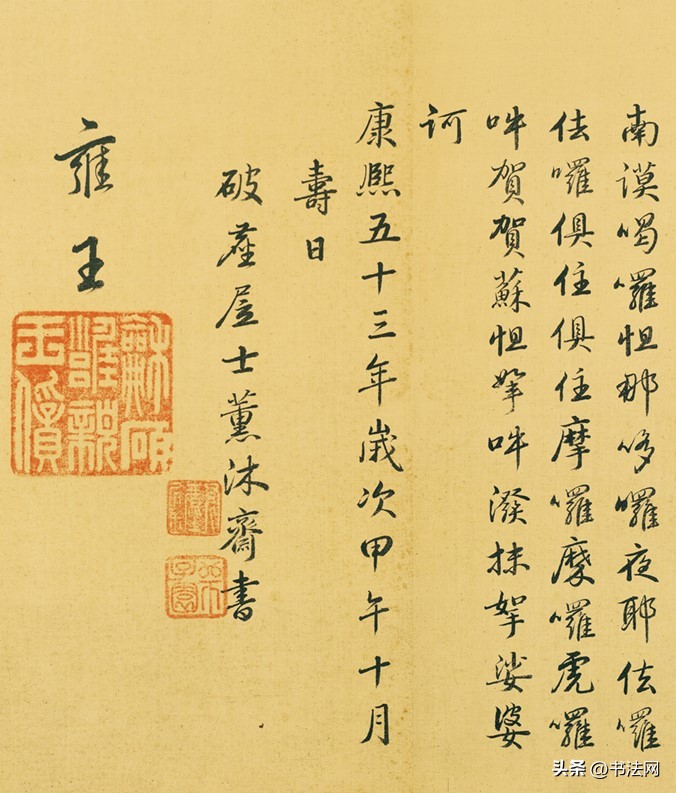 南謨喝囉怛那哆囉夜耶佉囉
佉囉俱住俱住摩囉摩囉虎囉
吽賀賀蘇怛拏吽潑抹拏娑婆
訶
康熙五十三年歲次甲午十月
壽日
破塵居士薰沐齋書
雍王
龢碩
雝親
王寶
头条 @书法网